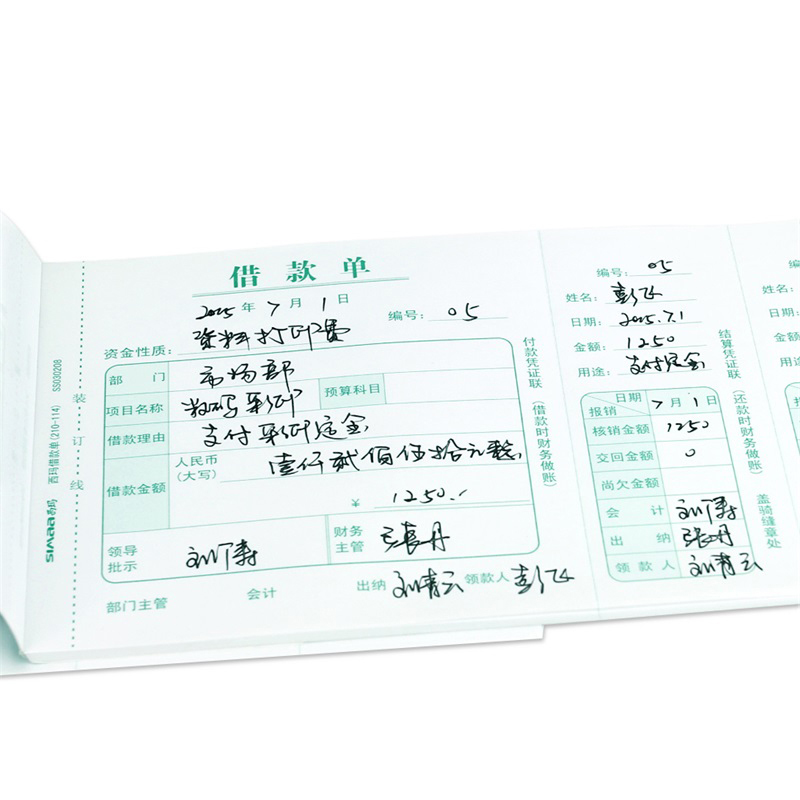 借款单
2025年7月1日
编号: 05
资金性质: 资料打印费
部门 市场部
项目名称 数码彩印 预算科目
借款理由 支付彩印定金
借款金额 人民币(大写) 壹仟贰佰伍拾元整
¥ 1250.
领导批示 刘涛 财务主管 张丹
部门主管 会计 出纳 刘青云 领款人 彭飞
付款凭证联(借款时财务做账)
装订线
simaa西玛 西玛借款单(210-114) SS030208
编号: 05
姓名: 彭飞
日期: 2025.7.1
金额: 1250
用途: 支付定金
日期 报销 7月1日
核销金额 1250
交回金额 0
尚欠金额
会计 刘涛
出纳 张丹
领款人 刘青云
结算凭证联(还款时财务做账)
盖骑缝章处
编
姓名:
日期:
金额:
用途: